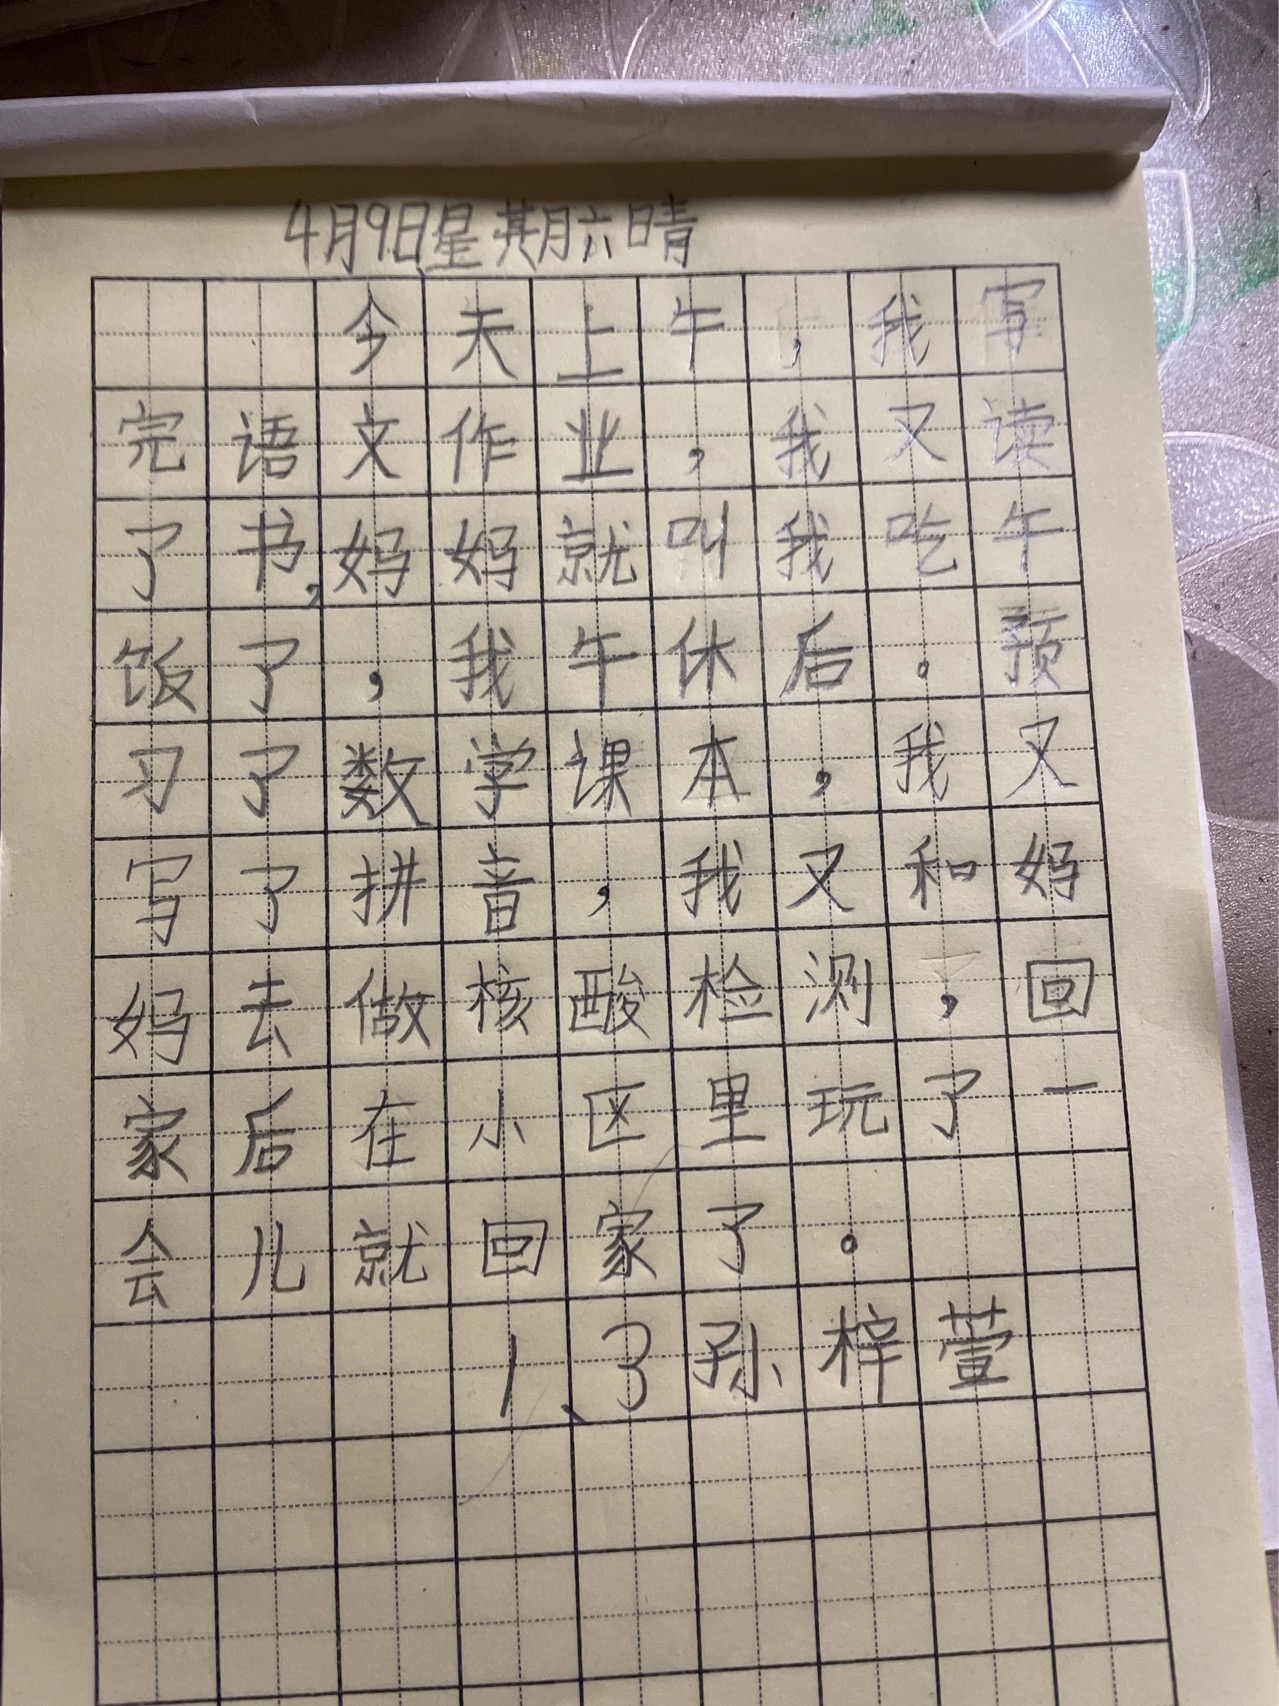 4月9日星期六晴
今天上午，我写
完语文作业，我又读
了书，妈妈就叫我吃午
饭了，我午休后。预
习了数学课本，我又
写了拼音，我又和妈
妈去做核酸检测，回
家后在小区里玩了一
会儿就回家了。
1、3孙梓萱